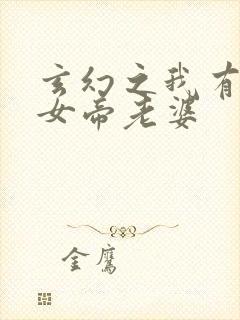 玄幻之我有
女帝老婆
金鹰